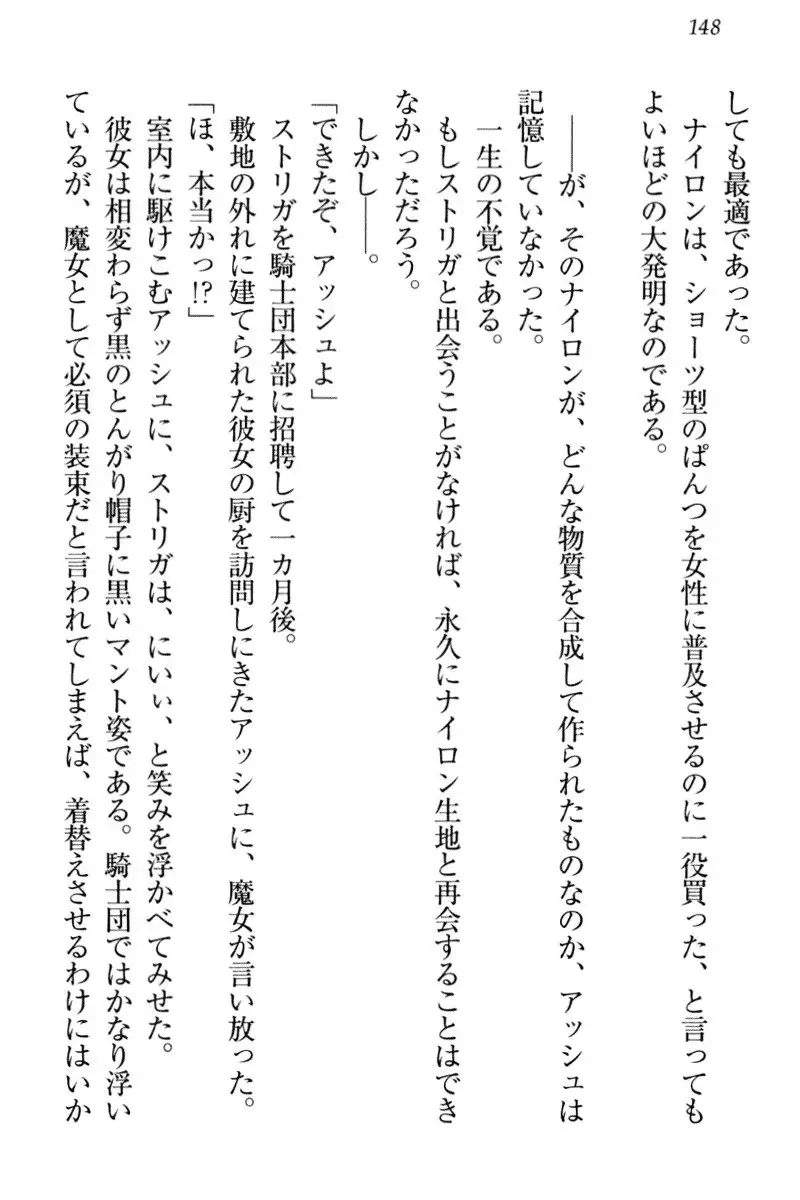 148
しても最適であった。
ナイロンは、ショーツ型のぱんつを女性に普及させるのに一役買った、と言っても
よいほどの大発明なのである。
――が、そのナイロンが、どんな物質を合成して作られたものなのか、アッシュは
記憶していなかった。
一生の不覚である。
もしストリガと出会うことがなければ、永久にナイロン生地と再会することはでき
なかっただろう。
しかし――。
「できたぞ、アッシュよ」
ストリガを騎士団本部に招聘して一カ月後。
敷地の外れに建てられた彼女の厨を訪問しにきたアッシュに、魔女が言い放った。
「ほ、本当かっ!?」
室内に駆けこむアッシュに、ストリガは、にいぃ、と笑みを浮かべてみせた。
彼女は相変わらず黒のとんがり帽子に黒いマント姿である。騎士団ではかなり浮い
ているが、魔女として必須の装束だと言われてしまえば、着替えさせるわけにはいか